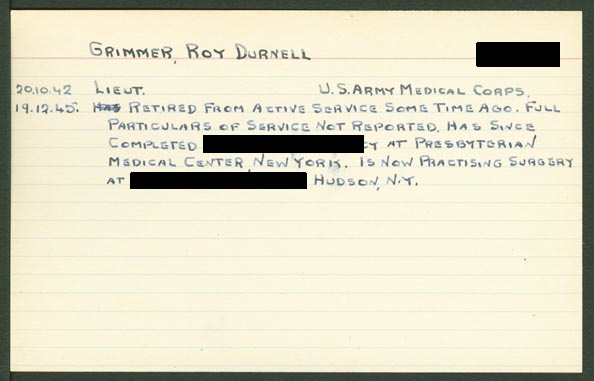 GRIMMER, ROY DURNELL
20.10.42 LIEUT. U.S. ARMY MEDICAL CORPS.
19.12.45. HAS RETIRED FROM ACTIVE SERVICE SOME TIME AGO. FULL
PARTICULARS OF SERVICE NOT REPORTED. HAS SINCE
COMPLETED CY AT PRESBYTERIAN
MEDICAL CENTER, NEW YORK. IS NOW PRACTISING SURGERY
AT HUDSON, N.Y.